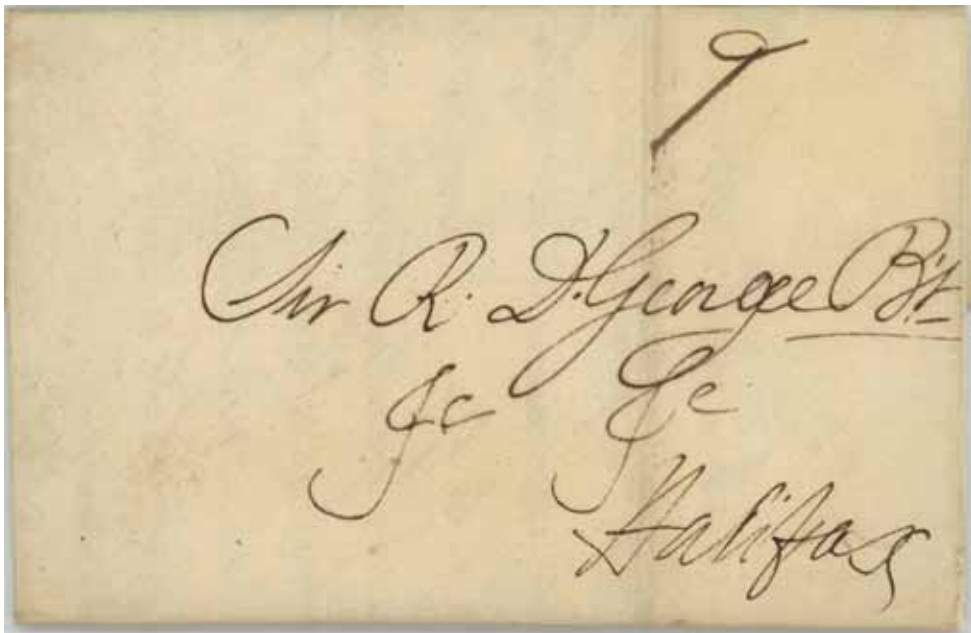 7
Sir R. D. George Bt
&c &c
Halifax